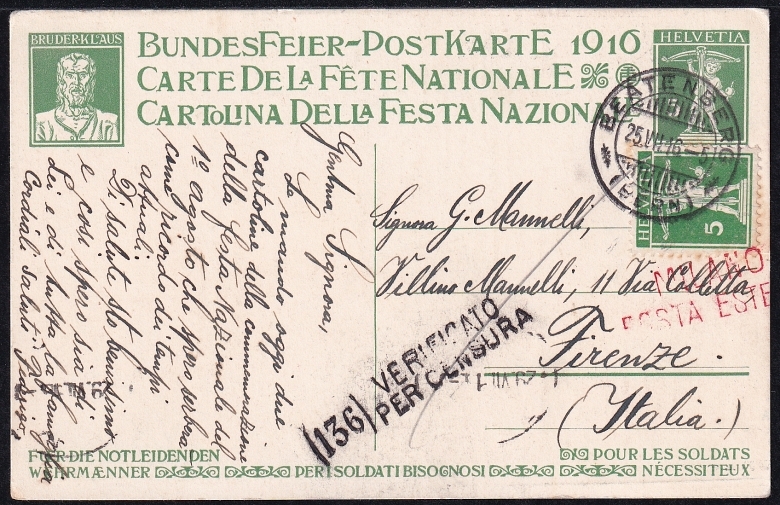 BRUDER·KLAUS
BUNDESFEIER-POSTKARTE 1916
CARTE DE LA FÊTE NATIONALE
CARTOLINA DELLA FESTA NAZION
HELVETIA
BEATENBERG
25.VII.16-5
(BERN)
HELVE
5
Gentma Signora,
Le mando oggi due
cartoline della commemorazione
della festa Nazionale del
1º agosto che spero serberà
come ricordo dei tempi
attuali.
Di salute sto benissimo
e così spero sia di
Lei e di tutta la famiglia
Cordiali saluti
Signora G. Mannelli,
Villino Mannelli, 11 Via Colletta
Firenze.
(Italia.)
MILANO
POSTA ESTE
(136) VERIFICATO
PER CENSURA
29.VII.1
29.VII.1
FÜR DIE NOTLEIDENDEN
WEHRMÆNNER
PER I SOLDATI BISOGNOSI
POUR LES SOLDATS
NÉCESSITEUX